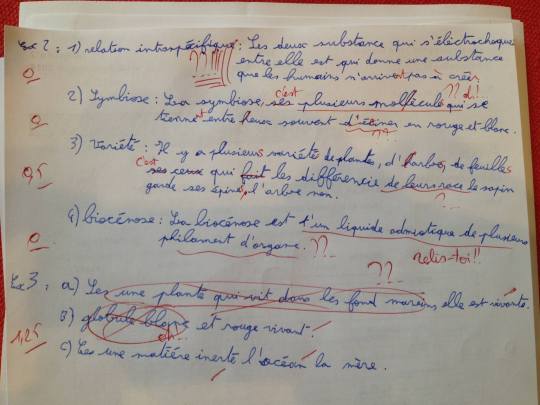 Ex 2 : 1) relation intraspécifique : Les deux substance qui s'électrocheque
?? !!!! entre elle est qui donne une substance
0 que les humains n'arrivent pas à créer.
?? d !!
2) Symbiose : La symbiose, c'est ses plusieurs molfécule qui se
0 tiennent entre eux souvent d'éliner en rouge et blanc.
3) Variété : Il y a plusieurs variété de plantes, d'arbre, de feuilles
c'est ses ceux qui fait les différencie de leurs race le sapin
0,5 garde ses épine, l'arbre non. ?
4) biocénose : La biocénose est l'un liquide admiotique de plusieurs
0 philament d'organe. ?? relis-toi !!
??
Ex 3 : a) Les une plante qui vit dans les fond mareins elle est vivante.
B) globule blanc et rouge vivant.
1,25 oh !
C) Les une matière inerte l'océan la mère.